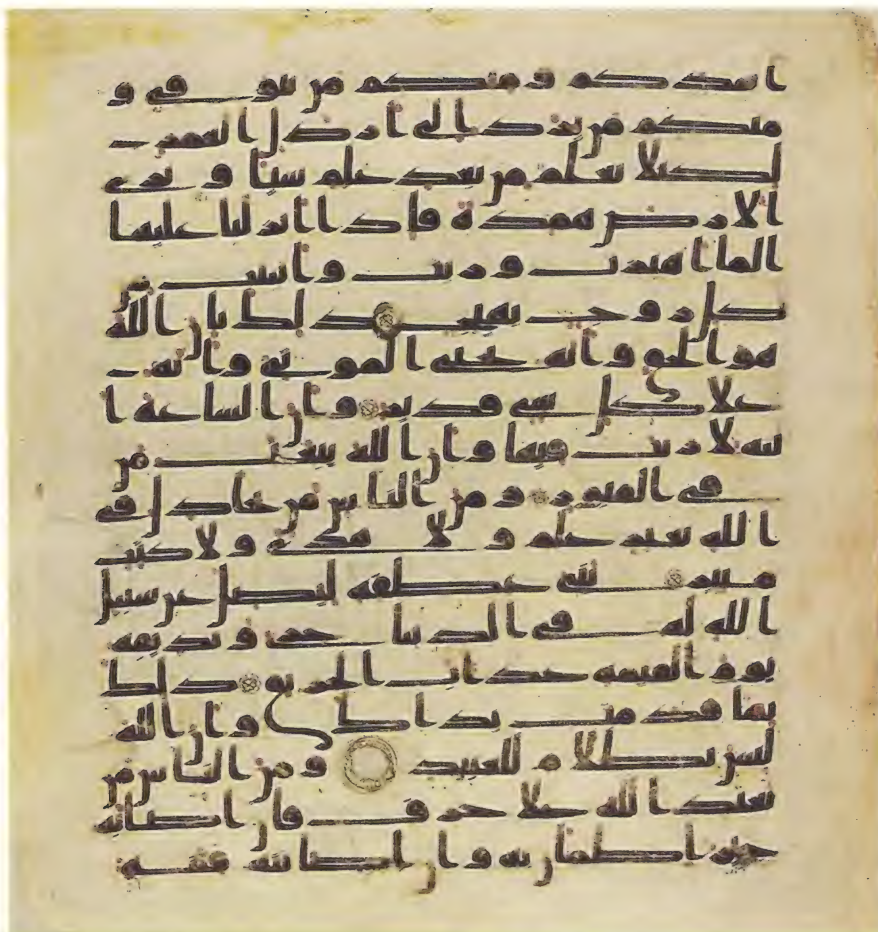 اشدكم ومنكم من يتوفى و
منكم من يرد الى ارذل العمر
لكيلا يعلم من بعد علم شيئا وترى
الارض همدة فاذا انزلنا عليها
الما اهتزت وربت وانبتت من
كل زوج بهيج ذلك بان الله
هو الحق وانه يحيى الموتى وانه
علا كل شى قدير وان الساعة ا
تية لا ريب فيها وان الله يبعث من
فى القبور ومن الناس من يجادل فى
الله بغير علم ولا هدى ولا كتب
منير ثنى عطفه ليضل عن سبيل
الله له فى الدنيا خزى ونذيقه
يوم القيمة عذاب الحريق ذلك
بما قدمت يداك وان الله
ليس بظلام للعبيد ومن الناس من
يعبد الله علا حرف فان اصابه
خير اطمان به وان اصابته فتنة